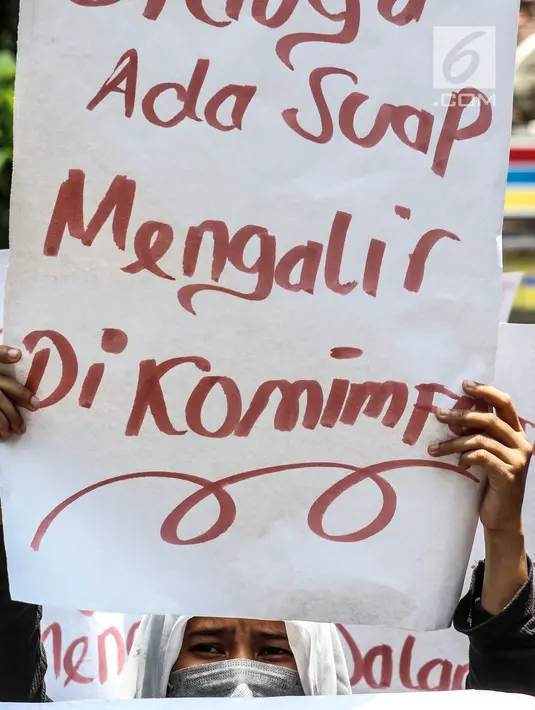 Ada Suap
Mengalir
Di Komimf
6
.COM
Dalam